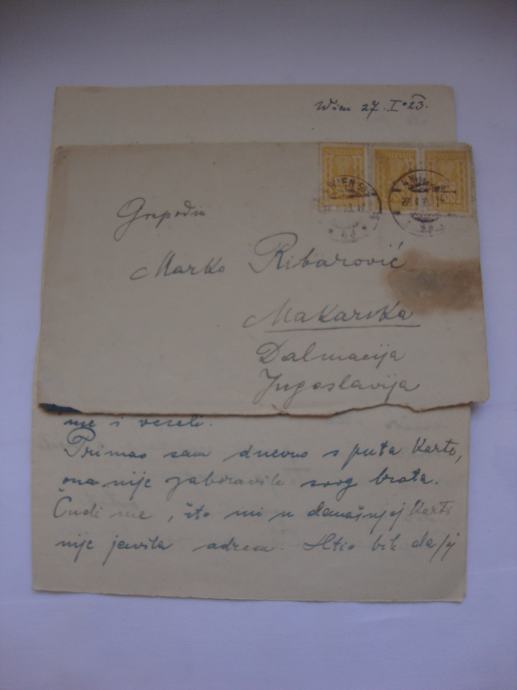 Wien 27. I. 23.
WIEN
Gospodin
Marko Ribarović
Makarska
Dalmacija
Jugoslavija
me i veseli.
Primao sam dnevno s puta karte,
ona nije zaboravila svog brata.
Čudi me, što mi u današnjoj karti
nije javila adresu. Htio bih da joj